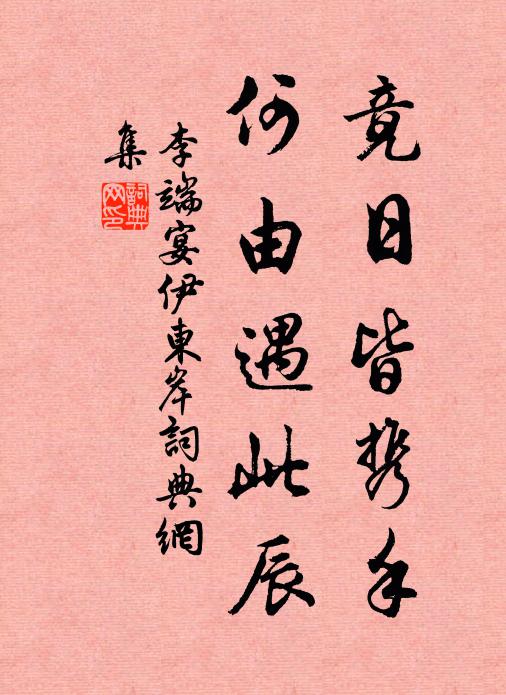 竟日皆携手
何由遇此辰
李端宴伊東岸詞典網
集
詞典
网印